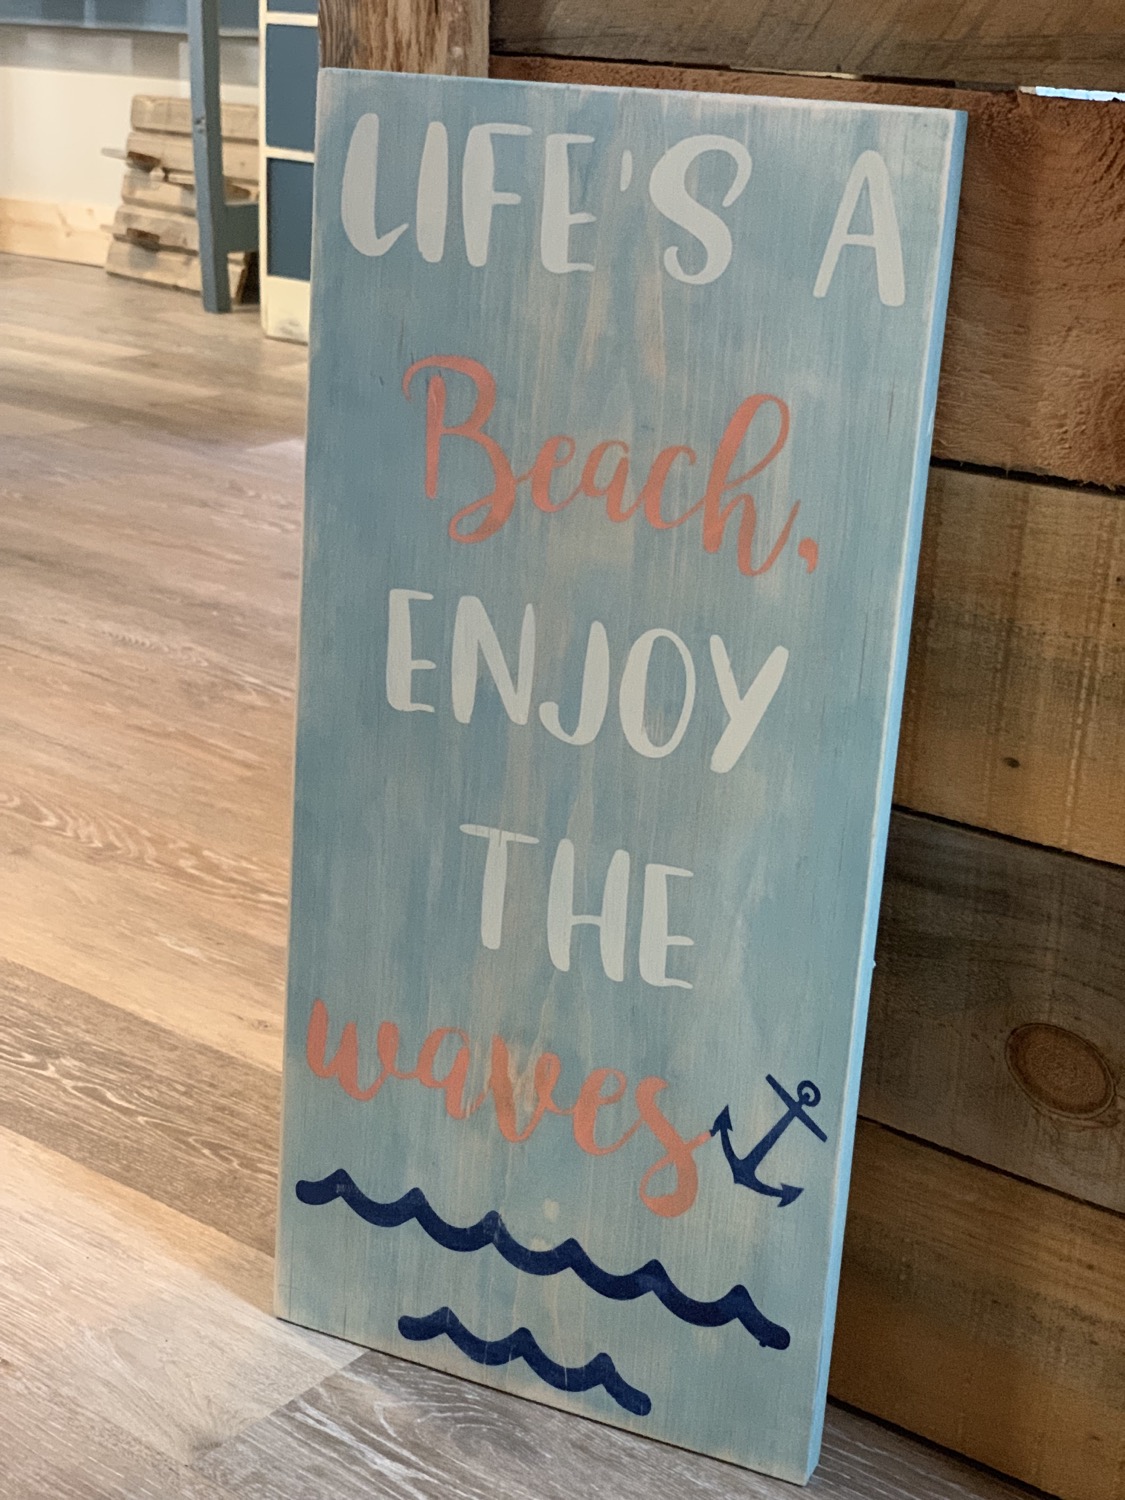 LIFE'S A
Beach,
ENJOY
THE
waves